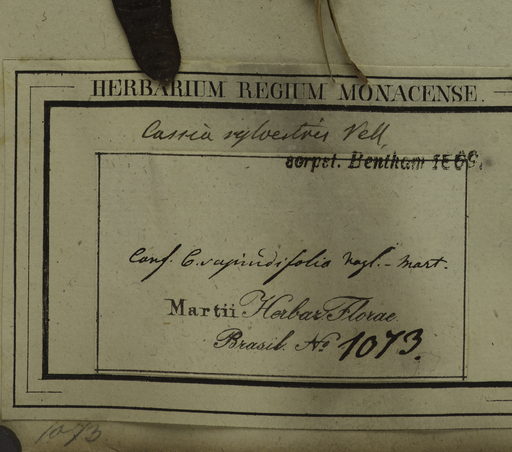 HERBARIUM REGIUM MONACENSE.
Cassia sylvestris Vell,
scrpst. Bentham 1869.
Conf. C. sapindifolia Vogl. - Mart.
Martii Herbar. Florae
Brasil. No 1073.
1073